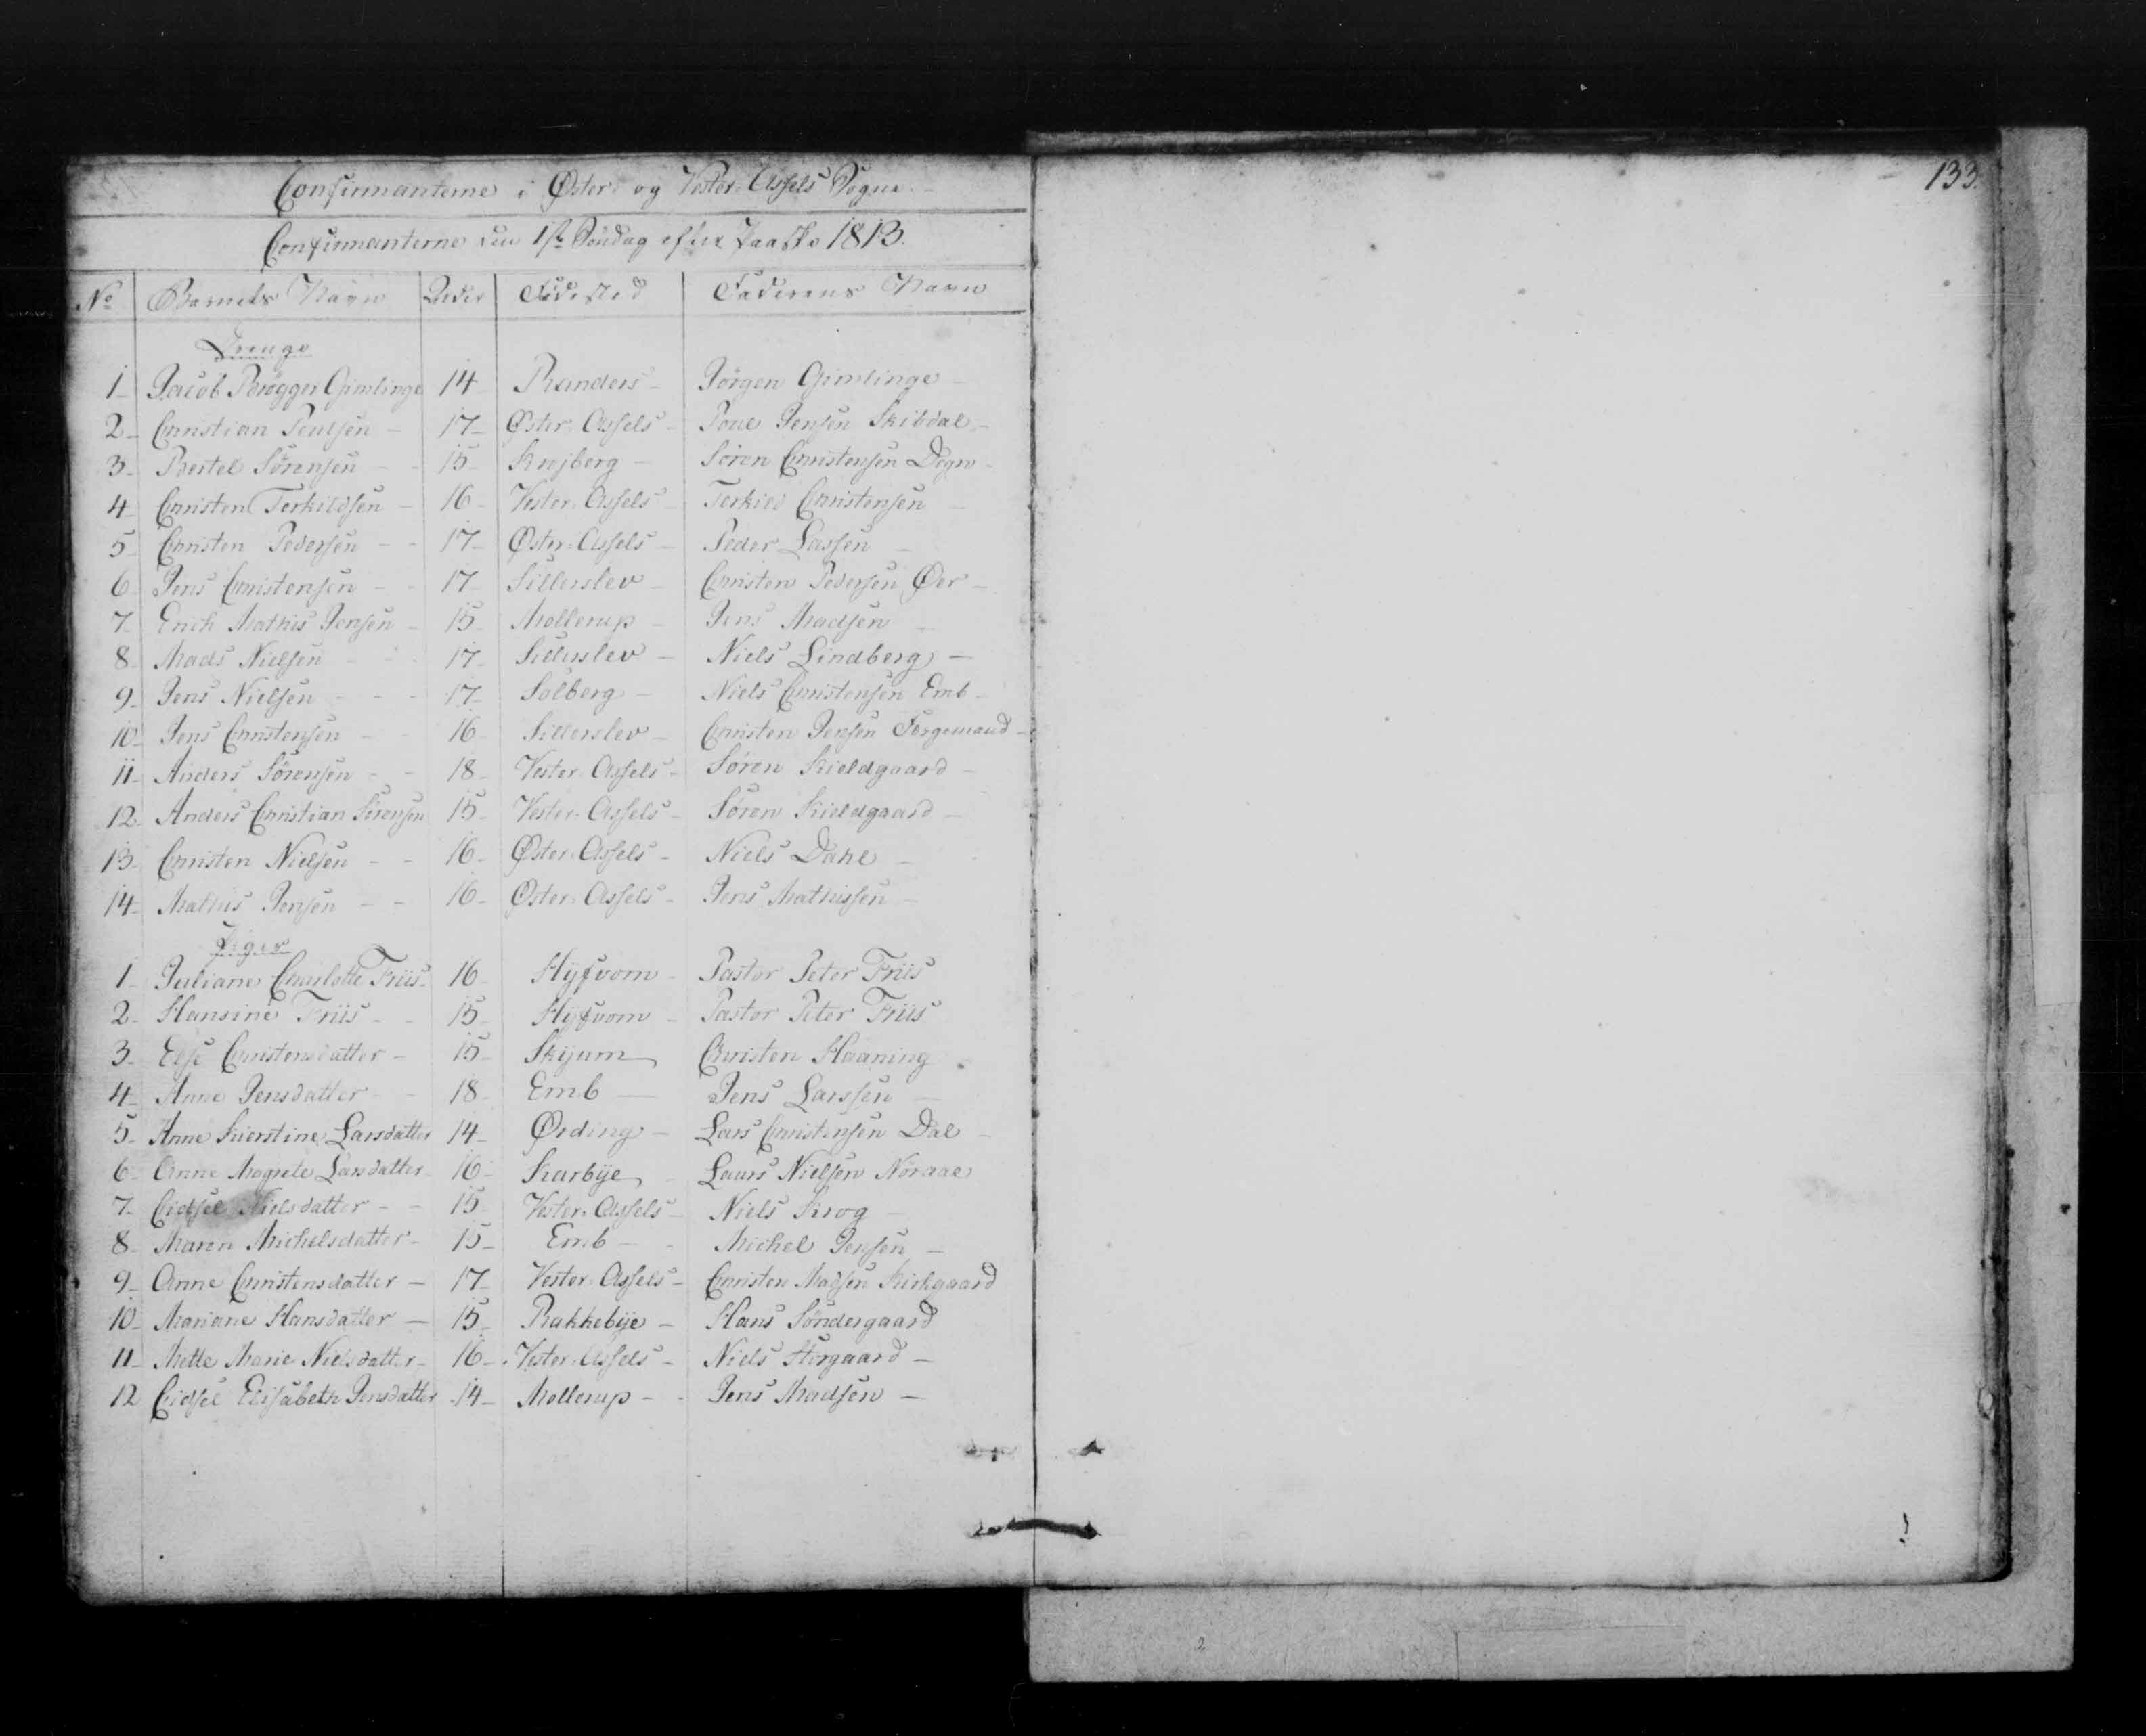 Confirmanterne i Øster og Vester-Assels Sogne
Confirmanterne den 1ste Søndag efter Paaske 1813.
No Barnets Navn Alder Fødested Faderens Navn
Drenge
1 Jacob Brøgger Gimlinge 14 Randers Jörgen Gimlinge
2 Christian Poulsen 17 Øster-Assels Poul Jensen Skibdal
3 Bertel Sörensen 15 Sören Christensen Degn
4 Christen Terkildsen 16 Vester-Assels Terkild Christensen
5 Christen Pedersen 17 Øster-Assels Peder Lassen
6 Jens Christensen 17 Sillerslev Christen Pedersen Øer
7 Erich Mathis Jensen 15 Mollerup Jens Madsen
8 Mads Nielsen 17 Sillerslev Niels Lindberg
9 Jens Nielsen 17 Solberg Niels Christensen Emb
10 Jens Christensen 16 Sillerslev Christen Jensen Færgemand
11 Anders Sörensen 18 Vester-Assels Sören Kieldgaard
12 Anders Christian Sörensen 15 Vester-Assels Sören Kieldgaard
13 Christen Nielsen 16 Øster-Assels Niels Dahl
14 Mathis Jensen 16 Øster-Assels Jens Mathissen
Piger
1 Juliane Charlotte Friis 16 Pastor Peter Friis
2 Hansine Friis 15 Pastor Peter Friis
3 Else Christensdatter 15 Skyum Christen Haaning
4 Anne Jensdatter 18 Emb Jens Larssen
5 Anne Kierstine Larsdatter 14 Ørding Lars Christensen Dal
6 Anne Magrete Larsdatter 16 Karbye Laurs Nielsen Noraae
7 Cidsel Nielsdatter 15 Vester-Assels Niels Krog
8 Maren Michelsdatter 15 Emb Michel Jensen
9 Anne Christensdatter 17 Vester-Assels Christen Madsen Kirkgaard
10 Mariane Hansdatter 15 Rakkebye Hans Söndergaard
11 Mette Marie Nielsdatter 16 Vester-Assels Niels Storgaard
12 Cidsel Elisabeth Jensdatter 14 Mollerup Jens Madsen
133.
2